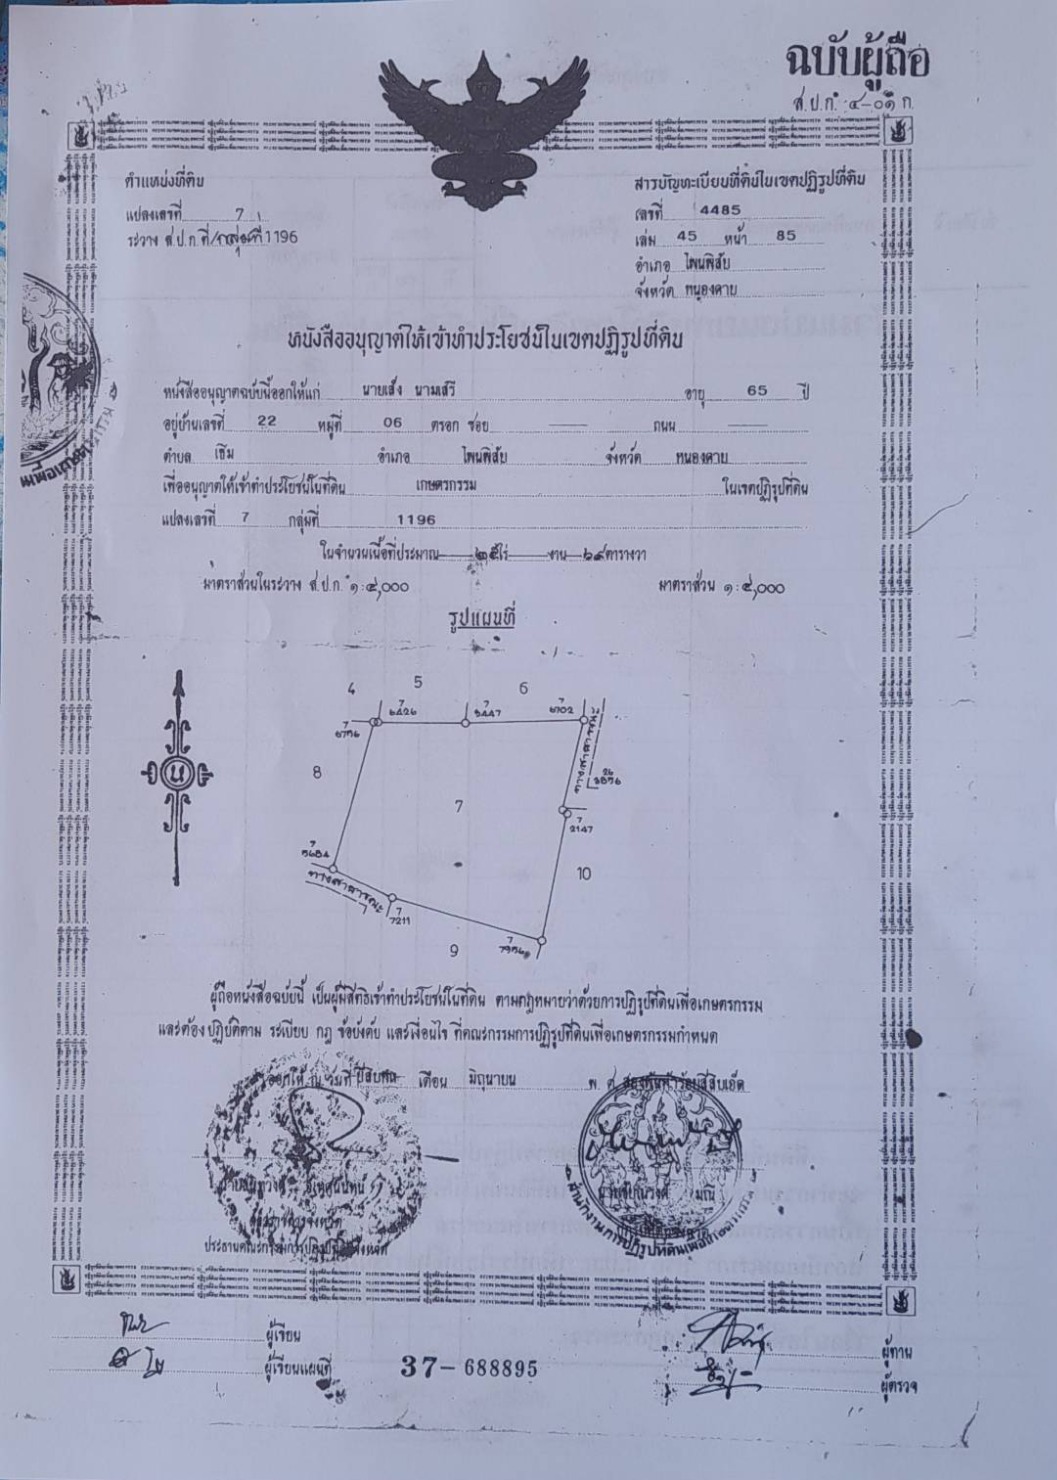 ฉบับผู้ถือ
ส.ป.ก. ๔-๐๑ ก.
ตำแหน่งที่ดิน
แปลงเลขที่ 7
ระวาง ส.ป.ก.ที่/กลุ่มที่ 1196
สารบัญทะเบียนที่ดินในเขตปฏิรูปที่ดิน
เลขที่ 4485
เล่ม 45 หน้า 85
อำเภอ โพนพิสัย
จังหวัด หนองคาย
หนังสืออนุญาตให้เข้าทำประโยชน์ในเขตปฏิรูปที่ดิน
หนังสืออนุญาตฉบับนี้ออกให้แก่ นายเส็ง นามเสรี อายุ 65 ปี
อยู่บ้านเลขที่ 22 หมู่ที่ 06 ตรอก ซอย ถนน
ตำบล เซิม อำเภอ โพนพิสัย จังหวัด หนองคาย
เพื่ออนุญาตให้เข้าทำประโยชน์ในที่ดิน เกษตรกรรม ในเขตปฏิรูปที่ดิน
แปลงเลขที่ 7 กลุ่มที่ 1196
ในจำนวนเนื้อที่ประมาณ ๒๕ ไร่ งาน ๖๔ ตารางวา
มาตราส่วนในระวาง ส.ป.ก. ๑:๔,๐๐๐ มาตราส่วน ๑:๔,๐๐๐
รูปแผนที่
4 5 6
7 6426 7 5447 7 6702
8
7
ทางสาธารณะ
7 2147
10
ทางสาธารณะ
7 7211
9
น
ผู้ถือหนังสือฉบับนี้ เป็นผู้มีสิทธิเข้าทำประโยชน์ในที่ดิน ตามกฎหมายว่าด้วยการปฏิรูปที่ดินเพื่อเกษตรกรรม
และต้องปฏิบัติตาม ระเบียบ กฎ ข้อบังคับ และเงื่อนไข ที่คณะกรรมการปฏิรูปที่ดินเพื่อเกษตรกรรมกำหนด
ออกให้ ณ วันที่ เดือน มิถุนายน พ.ศ. สองพันห้าร้อยสี่สิบเอ็ด
ผู้ว่าราชการจังหวัด
ประธานคณะกรรมการปฏิรูปที่ดินจังหวัด
ผู้เขียน
ผู้เขียนแผนที่
37-688895
ผู้ทาน
ผู้ตรวจ